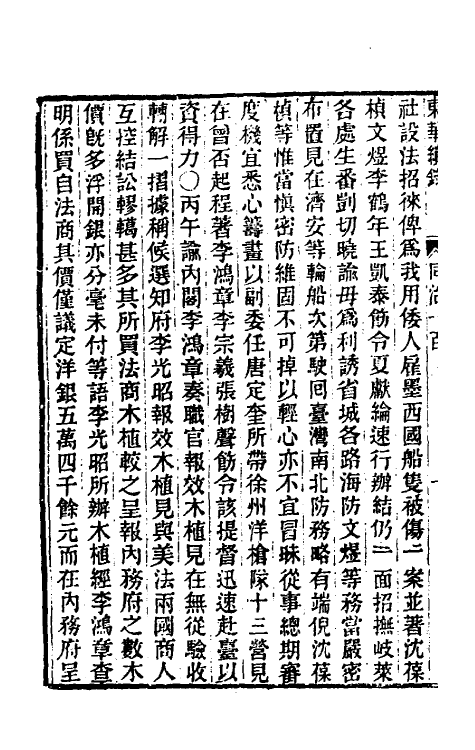 東華續錄 同治一百
社設法招徠俾爲我用倭人雇墨西國船隻被傷一案並著沈葆
楨文煜李鶴年王凱泰飭令夏獻綸速行辦結仍一面招撫岐萊
各處生番剴切曉諭毋爲利誘省城各路海防文煜等務當嚴密
布置見在濟安等輪船次第駛回臺灣南北防務略有端倪沈葆
楨等惟當愼密防維固不可掉以輕心亦不宜冒昧從事總期審
度機宜悉心籌畫以副委任唐定奎所帶徐州洋槍隊十三營見
在曾否起程著李鴻章李宗羲張樹聲飭令該提督迅速赴臺以
資得力○丙午諭內閣李鴻章奏職官報效木植見在無從驗收
轉解一摺據稱候選知府李光昭報效木植見與美法兩國商人
互控結訟轇轕甚多其所買法商木植較之呈報內務府之數木
價旣多浮開銀亦分毫未付等語李光昭所辦木植經李鴻章查
明係買自法商其價僅議定洋銀五萬四千餘元而在內務府呈